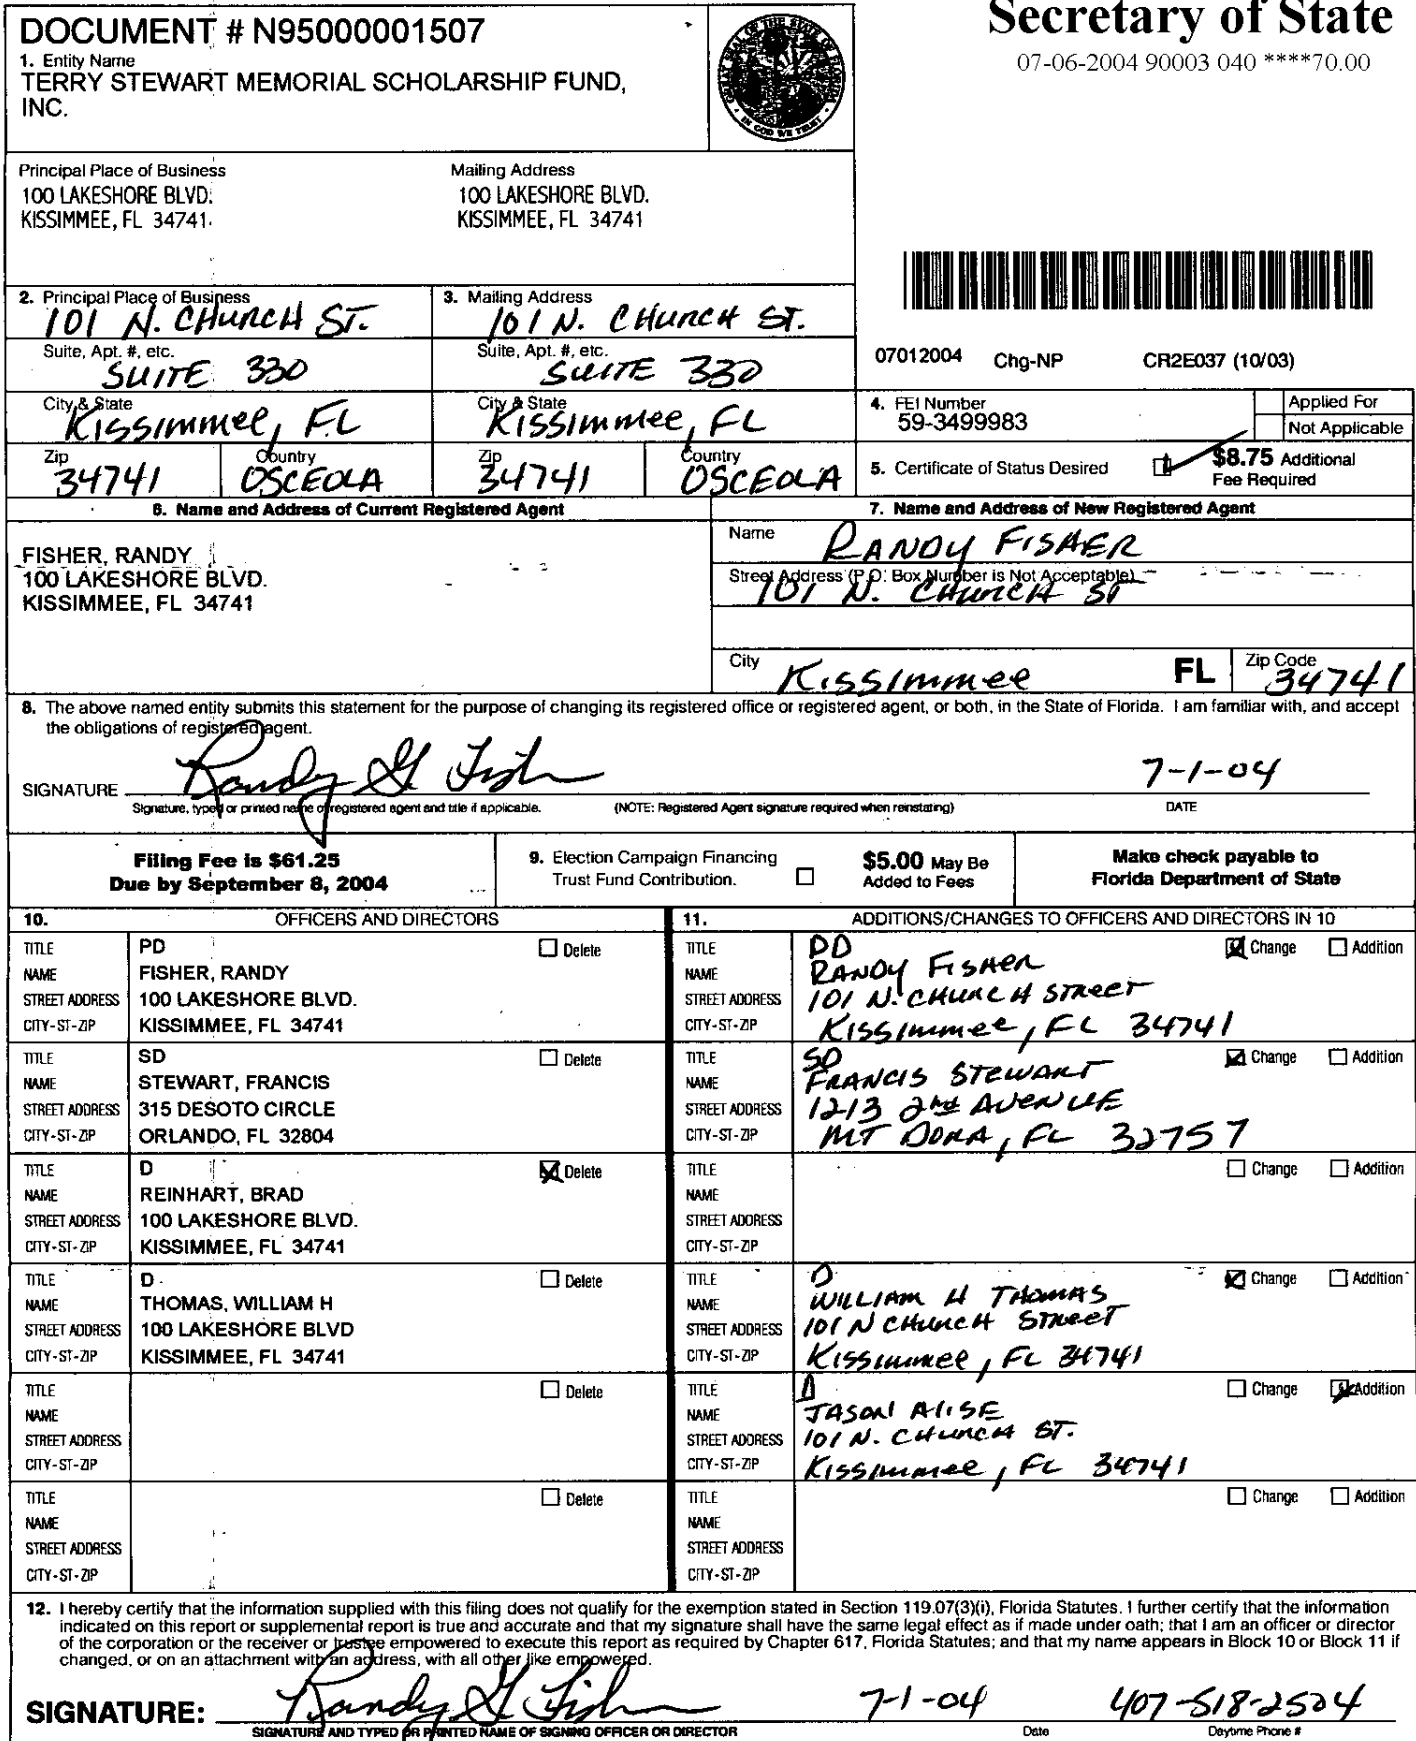 Secretary of State
07-06-2004 90003 040 ****70.00
DOCUMENT # N95000001507
1. Entity Name
TERRY STEWART MEMORIAL SCHOLARSHIP FUND,
INC.
Principal Place of Business
100 LAKESHORE BLVD.
KISSIMMEE, FL 34741
Mailing Address
100 LAKESHORE BLVD.
KISSIMMEE, FL 34741
2. Principal Place of Business
101 N. CHURCH ST.
3. Mailing Address
101 N. CHURCH ST.
Suite, Apt. #, etc.
SUITE 330
Suite, Apt. #, etc.
SUITE 330
City & State
Kissimmee, FL
City & State
Kissimmee, FL
Zip
34741
Country
OSCEOLA
Zip
34741
Country
OSCEOLA
07012004 Chg-NP CR2E037 (10/03)
4. FEI Number
59-3499983
Applied For
Not Applicable
5. Certificate of Status Desired
$8.75 Additional
Fee Required
6. Name and Address of Current Registered Agent
FISHER, RANDY
100 LAKESHORE BLVD.
KISSIMMEE, FL 34741
7. Name and Address of New Registered Agent
Name RANDY FISHER
Street Address (P.O. Box Number is Not Acceptable)
101 N. CHURCH ST
City Kissimmee FL Zip Code 34741
8. The above named entity submits this statement for the purpose of changing its registered office or registered agent, or both, in the State of Florida. I am familiar with, and accept
the obligations of registered agent.
SIGNATURE Randy G Fish 7-1-04
Signature, typed or printed name of registered agent and title if applicable. (NOTE: Registered Agent signature required when reinstating) DATE
Filing Fee is $61.25
Due by September 8, 2004
9. Election Campaign Financing
Trust Fund Contribution.
$5.00 May Be
Added to Fees
Make check payable to
Florida Department of State
10. OFFICERS AND DIRECTORS
TITLE PD Delete
NAME FISHER, RANDY
STREET ADDRESS 100 LAKESHORE BLVD.
CITY-ST-ZIP KISSIMMEE, FL 34741
TITLE SD Delete
NAME STEWART, FRANCIS
STREET ADDRESS 315 DESOTO CIRCLE
CITY-ST-ZIP ORLANDO, FL 32804
TITLE D Delete
NAME REINHART, BRAD
STREET ADDRESS 100 LAKESHORE BLVD.
CITY-ST-ZIP KISSIMMEE, FL 34741
TITLE D Delete
NAME THOMAS, WILLIAM H
STREET ADDRESS 100 LAKESHORE BLVD
CITY-ST-ZIP KISSIMMEE, FL 34741
TITLE Delete
NAME
STREET ADDRESS
CITY-ST-ZIP
TITLE Delete
NAME
STREET ADDRESS
CITY-ST-ZIP
11. ADDITIONS/CHANGES TO OFFICERS AND DIRECTORS IN 10
TITLE PD Change Addition
NAME RANDY FISHER
STREET ADDRESS 101 N. CHURCH STREET
CITY-ST-ZIP Kissimmee, FL 34741
TITLE SD Change Addition
NAME FRANCIS STEWART
STREET ADDRESS 1213 2nd AVENUE
CITY-ST-ZIP MT DORA, FL 32757
TITLE Change Addition
NAME
STREET ADDRESS
CITY-ST-ZIP
TITLE D Change Addition
NAME WILLIAM H THOMAS
STREET ADDRESS 101 N CHURCH STREET
CITY-ST-ZIP Kissimmee, FL 34741
TITLE D Change Addition
NAME JASON
STREET ADDRESS 101 N. CHURCH ST.
CITY-ST-ZIP Kissimmee, FL 34741
TITLE Change Addition
NAME
STREET ADDRESS
CITY-ST-ZIP
12. I hereby certify that the information supplied with this filing does not qualify for the exemption stated in Section 119.07(3)(i), Florida Statutes. I further certify that the information
indicated on this report or supplemental report is true and accurate and that my signature shall have the same legal effect as if made under oath; that I am an officer or director
of the corporation or the receiver or trustee empowered to execute this report as required by Chapter 617, Florida Statutes; and that my name appears in Block 10 or Block 11 if
changed, or on an attachment with an address, with all other like empowered.
SIGNATURE: Randy G Fish 7-1-04 407-518-2504
SIGNATURE AND TYPED OR PRINTED NAME OF SIGNING OFFICER OR DIRECTOR Date Daytime Phone #